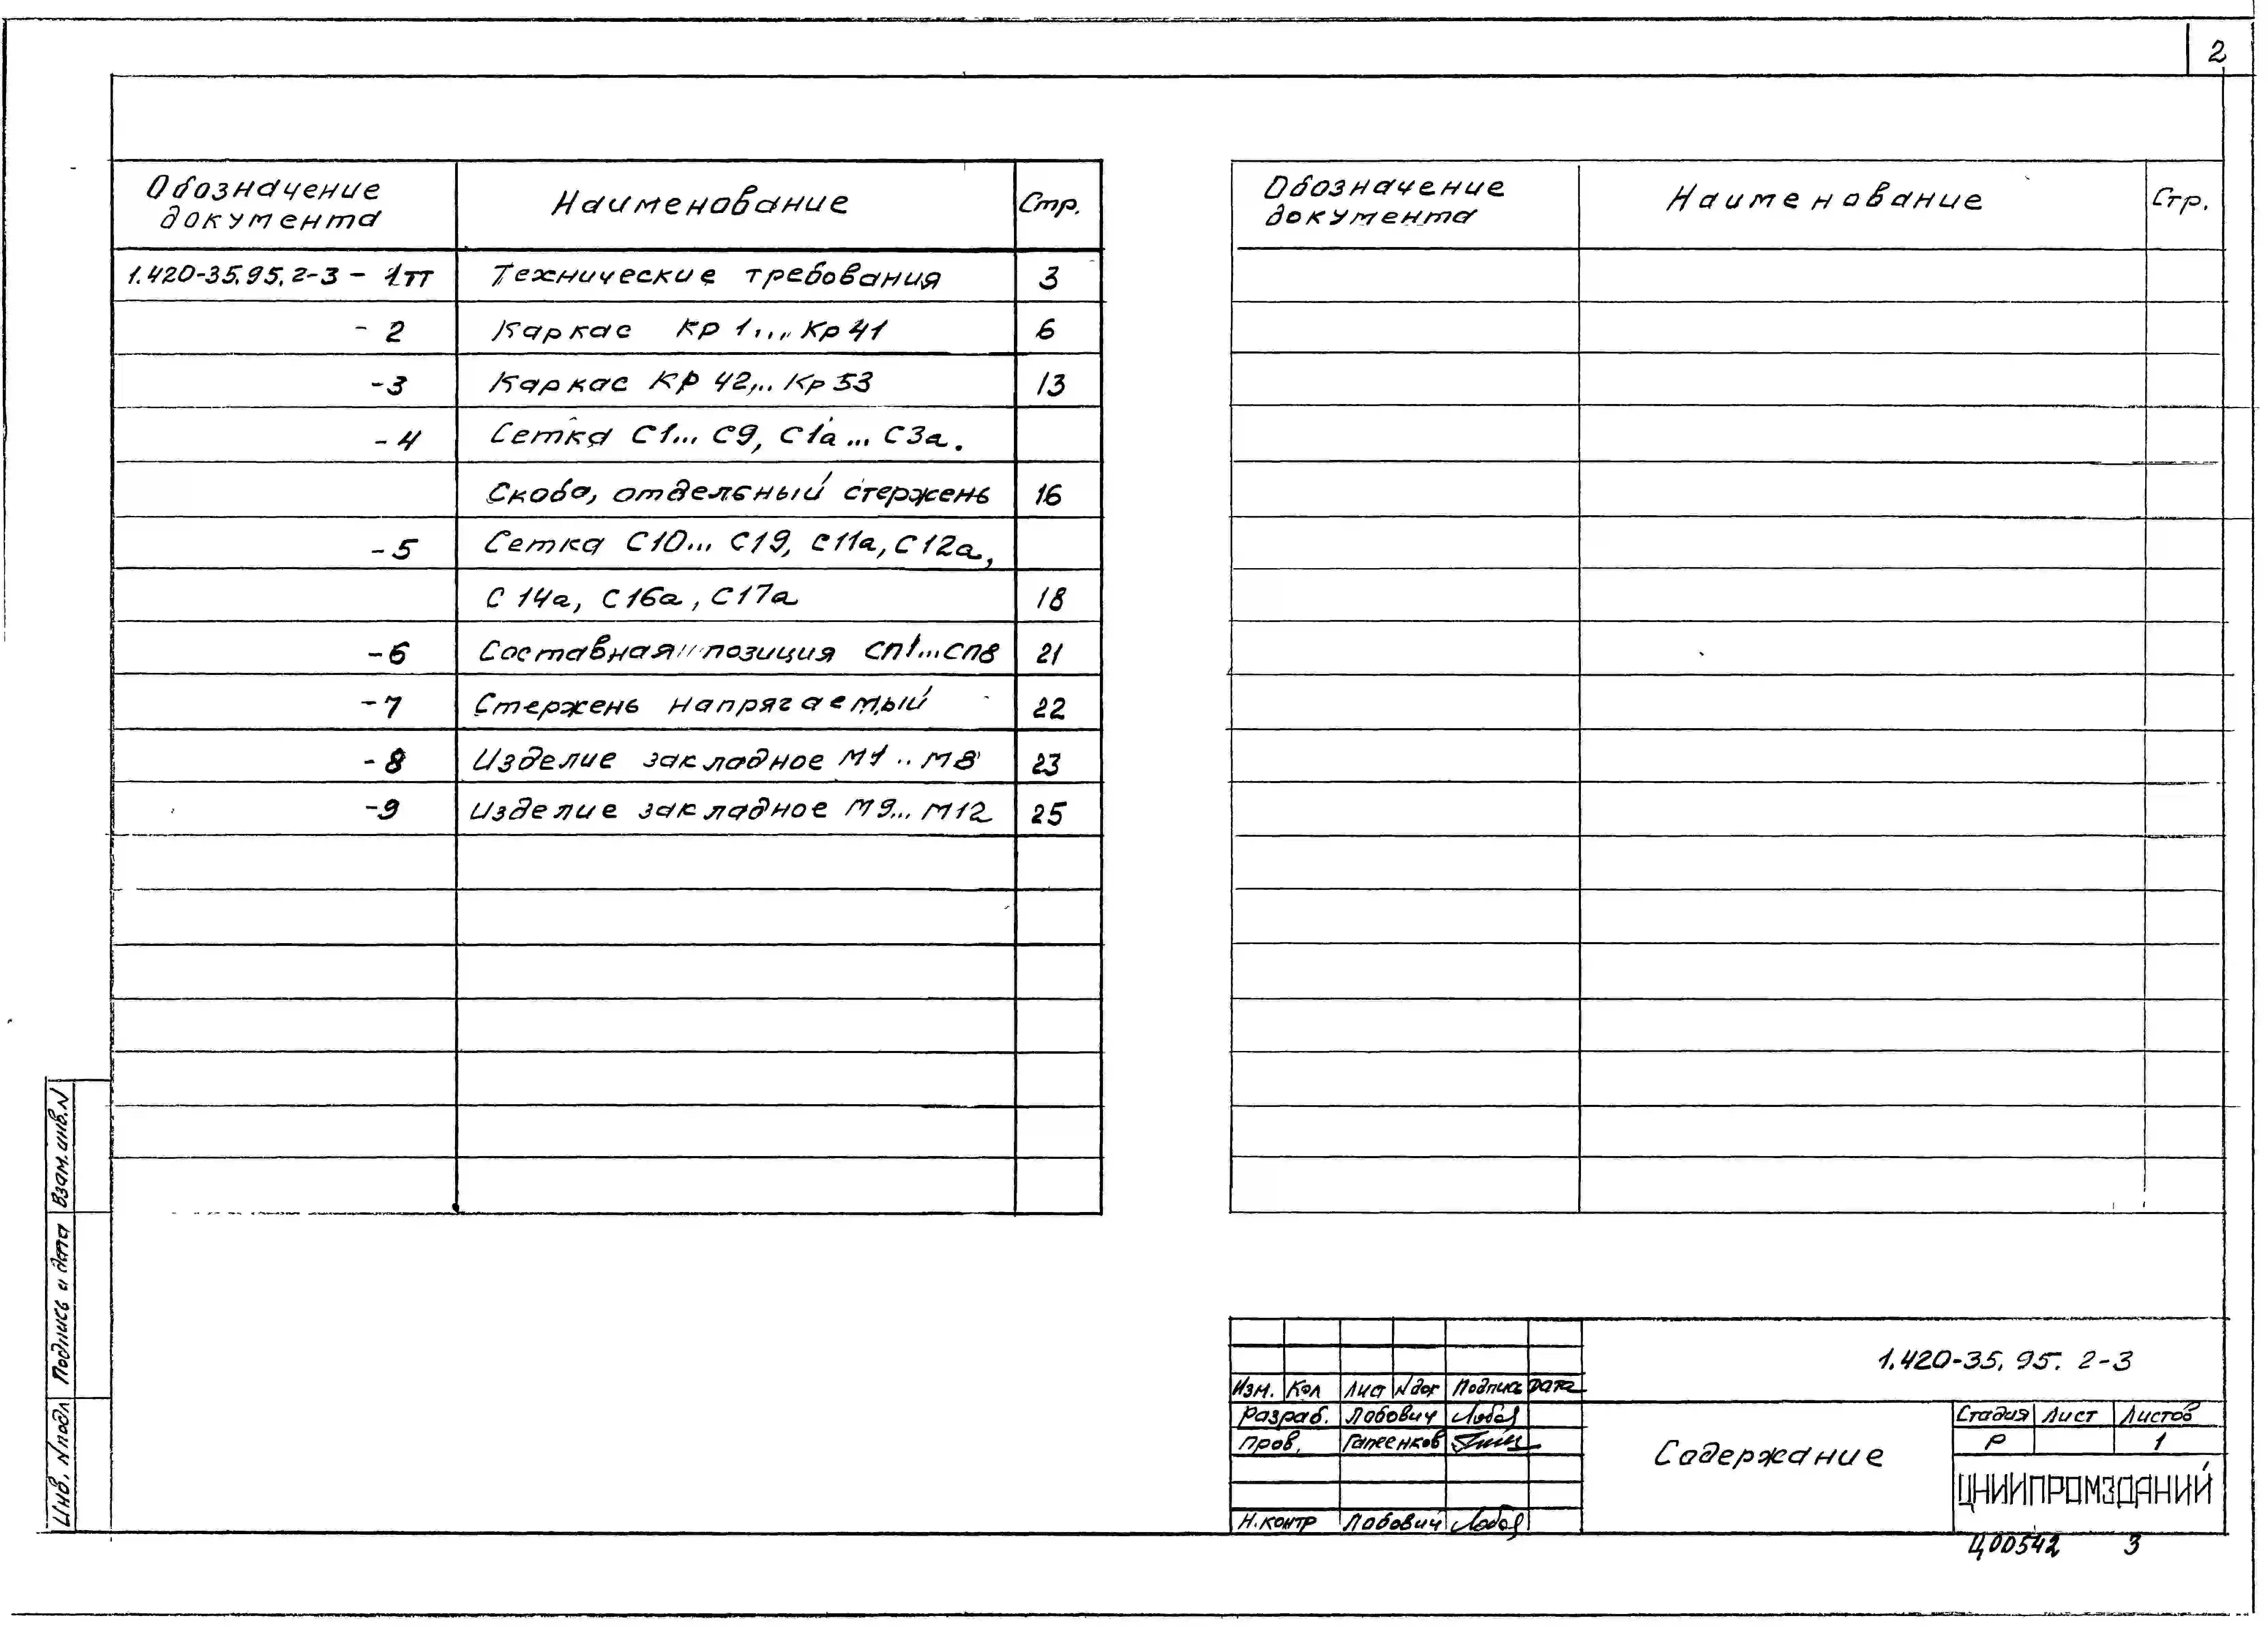 2
Обозначение документа Наименование Стр.
1.420-35.95.2-3 - 1тт Технические требования 3
- 2 Каркас Кр 1... Кр 41 6
-3 Каркас Кр 42... Кр 53 13
-4 Сетка С1... С9, С1а... С3а.
Скоба, отдельный стержень 16
-5 Сетка С10... С19, С11а, С12а,
С 14а, С 16а, С17а 18
-6 Составная позиция СП1...СП8 21
-7 Стержень напрягаемый 22
-8 Изделие закладное М1..М8 23
-9 Изделие закладное М9... М12 25
Обозначение документа Наименование Стр.
Взам.инв.N
Подпись и дата
Инв. N подл
1.420-35.95.2-3
Изм. Кол Лист Nдок Подпись Дата
Разраб. Лобович
Пров. Гапеенков
Н.контр Лобович
Содержание
Стадия Лист Листов
Р 1
ЦНИИПРОМЗДАНИЙ
Ц00542 3